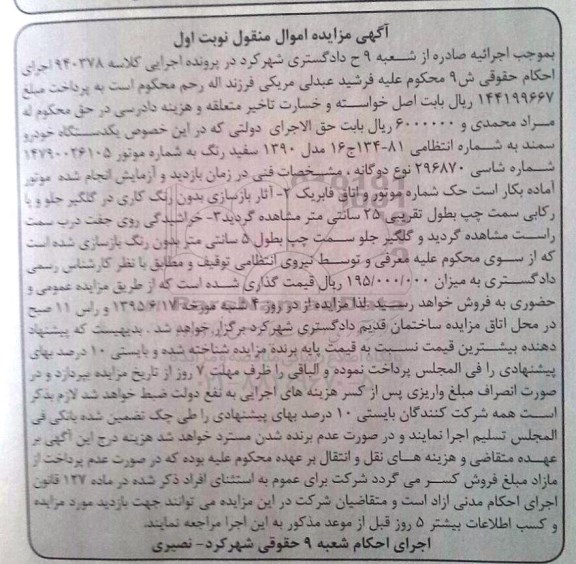 آگهی مزایده اموال منقول نوبت اول
بموجب اجرائیه صادره از شعبه ۹ ح دادگستری شهرکرد در پرونده اجرایی کلاسه ۹۴۰۳۷۸ اجرای
احکام حقوقی ش۹ محکوم علیه فرشید عبدلی مریکی فرزند اله رحم محکوم است به پرداخت مبلغ
۱۴۴۱۹۹۶۶۷ ریال بابت اصل خواسته و خسارت تاخیر متعلقه و هزینه دادرسی در حق محکوم له
مراد محمدی و ۶۰۰۰۰۰۰ ریال بابت حق الاجرای دولتی که در این خصوص یکدستگاه خودرو
سمند به شماره انتظامی ۸۱-۱۳۴ج۱۶ مدل ۱۳۹۰ سفید رنگ به شماره موتور ۱۴۷۹۰۰۲۶۱۰۵
شماره شاسی ۲۹۶۸۷۰ نوع دوگانه ، مشخصات فنی در زمان بازدید و آزمایش انجام شده موتور
آماده بکار است حک شماره موتور و اتاق فابریک ۲- آثار بازسازی بدون رنگ کاری در گلگیر جلو و پا
رکابی سمت چپ بطول تقریبی ۲۵ سانتی متر مشاهده گردید۳- خراشیدگی روی جفت درب سمت
راست مشاهده گردید و گلگیر جلو سمت چپ بطول ۵ سانتی متر بدون رنگ بازسازی شده است
که از سوی محکوم علیه معرفی و توسط نیروی انتظامی توقیف و مطابق با نظر کارشناس رسمی
دادگستری به میزان ۱۹۵/۰۰۰/۰۰۰ ریال قیمت گذاری شده است که از طریق مزایده عمومی و
حضوری به فروش خواهد رسید. لذا مزایده از در روز ۴ شنبه مورخه ۱۳۹۵/۶/۱۷ و راس ۱۱ صبح
در محل اتاق مزایده ساختمان قدیم دادگستری شهرکرد برگزار خواهد شد . بدیهیست که پیشنهاد
دهنده بیشترین قیمت نسبت به قیمت پایه برنده مزایده شناخته شده و بایستی ۱۰ درصد بهای
پیشنهادی را فی المجلس پرداخت نموده و الباقی را ظرف مهلت ۷ روز از تاریخ مزایده بپردازد و در
صورت انصراف مبلغ واریزی پس از کسر هزینه های اجرایی به نفع دولت ضبط خواهد شد لازم بذکر
است همه شرکت کنندگان بایستی ۱۰ درصد بهای پیشنهادی را طی چک تضمین شده بانکی فی
المجلس تسلیم اجرا نمایند و در صورت عدم برنده شدن مسترد خواهد شد هزینه درج این آگهی بر
عهده متقاضی و هزینه های نقل و انتقال بر عهده محکوم علیه بوده که در صورت عدم پرداخت از
مازاد مبلغ فروش کسر می گردد شرکت برای عموم به استثنای افراد ذکر شده در ماده ۱۲۷ قانون
اجرای احکام مدنی ازاد است و متقاضیان شرکت در این مزایده می توانند جهت بازدید مورد مزایده
و کسب اطلاعات بیشتر ۵ روز قبل از موعد مذکور به این اجرا مراجعه نمایند.
اجرای احکام شعبه ۹ حقوقی شهرکرد- نصیری